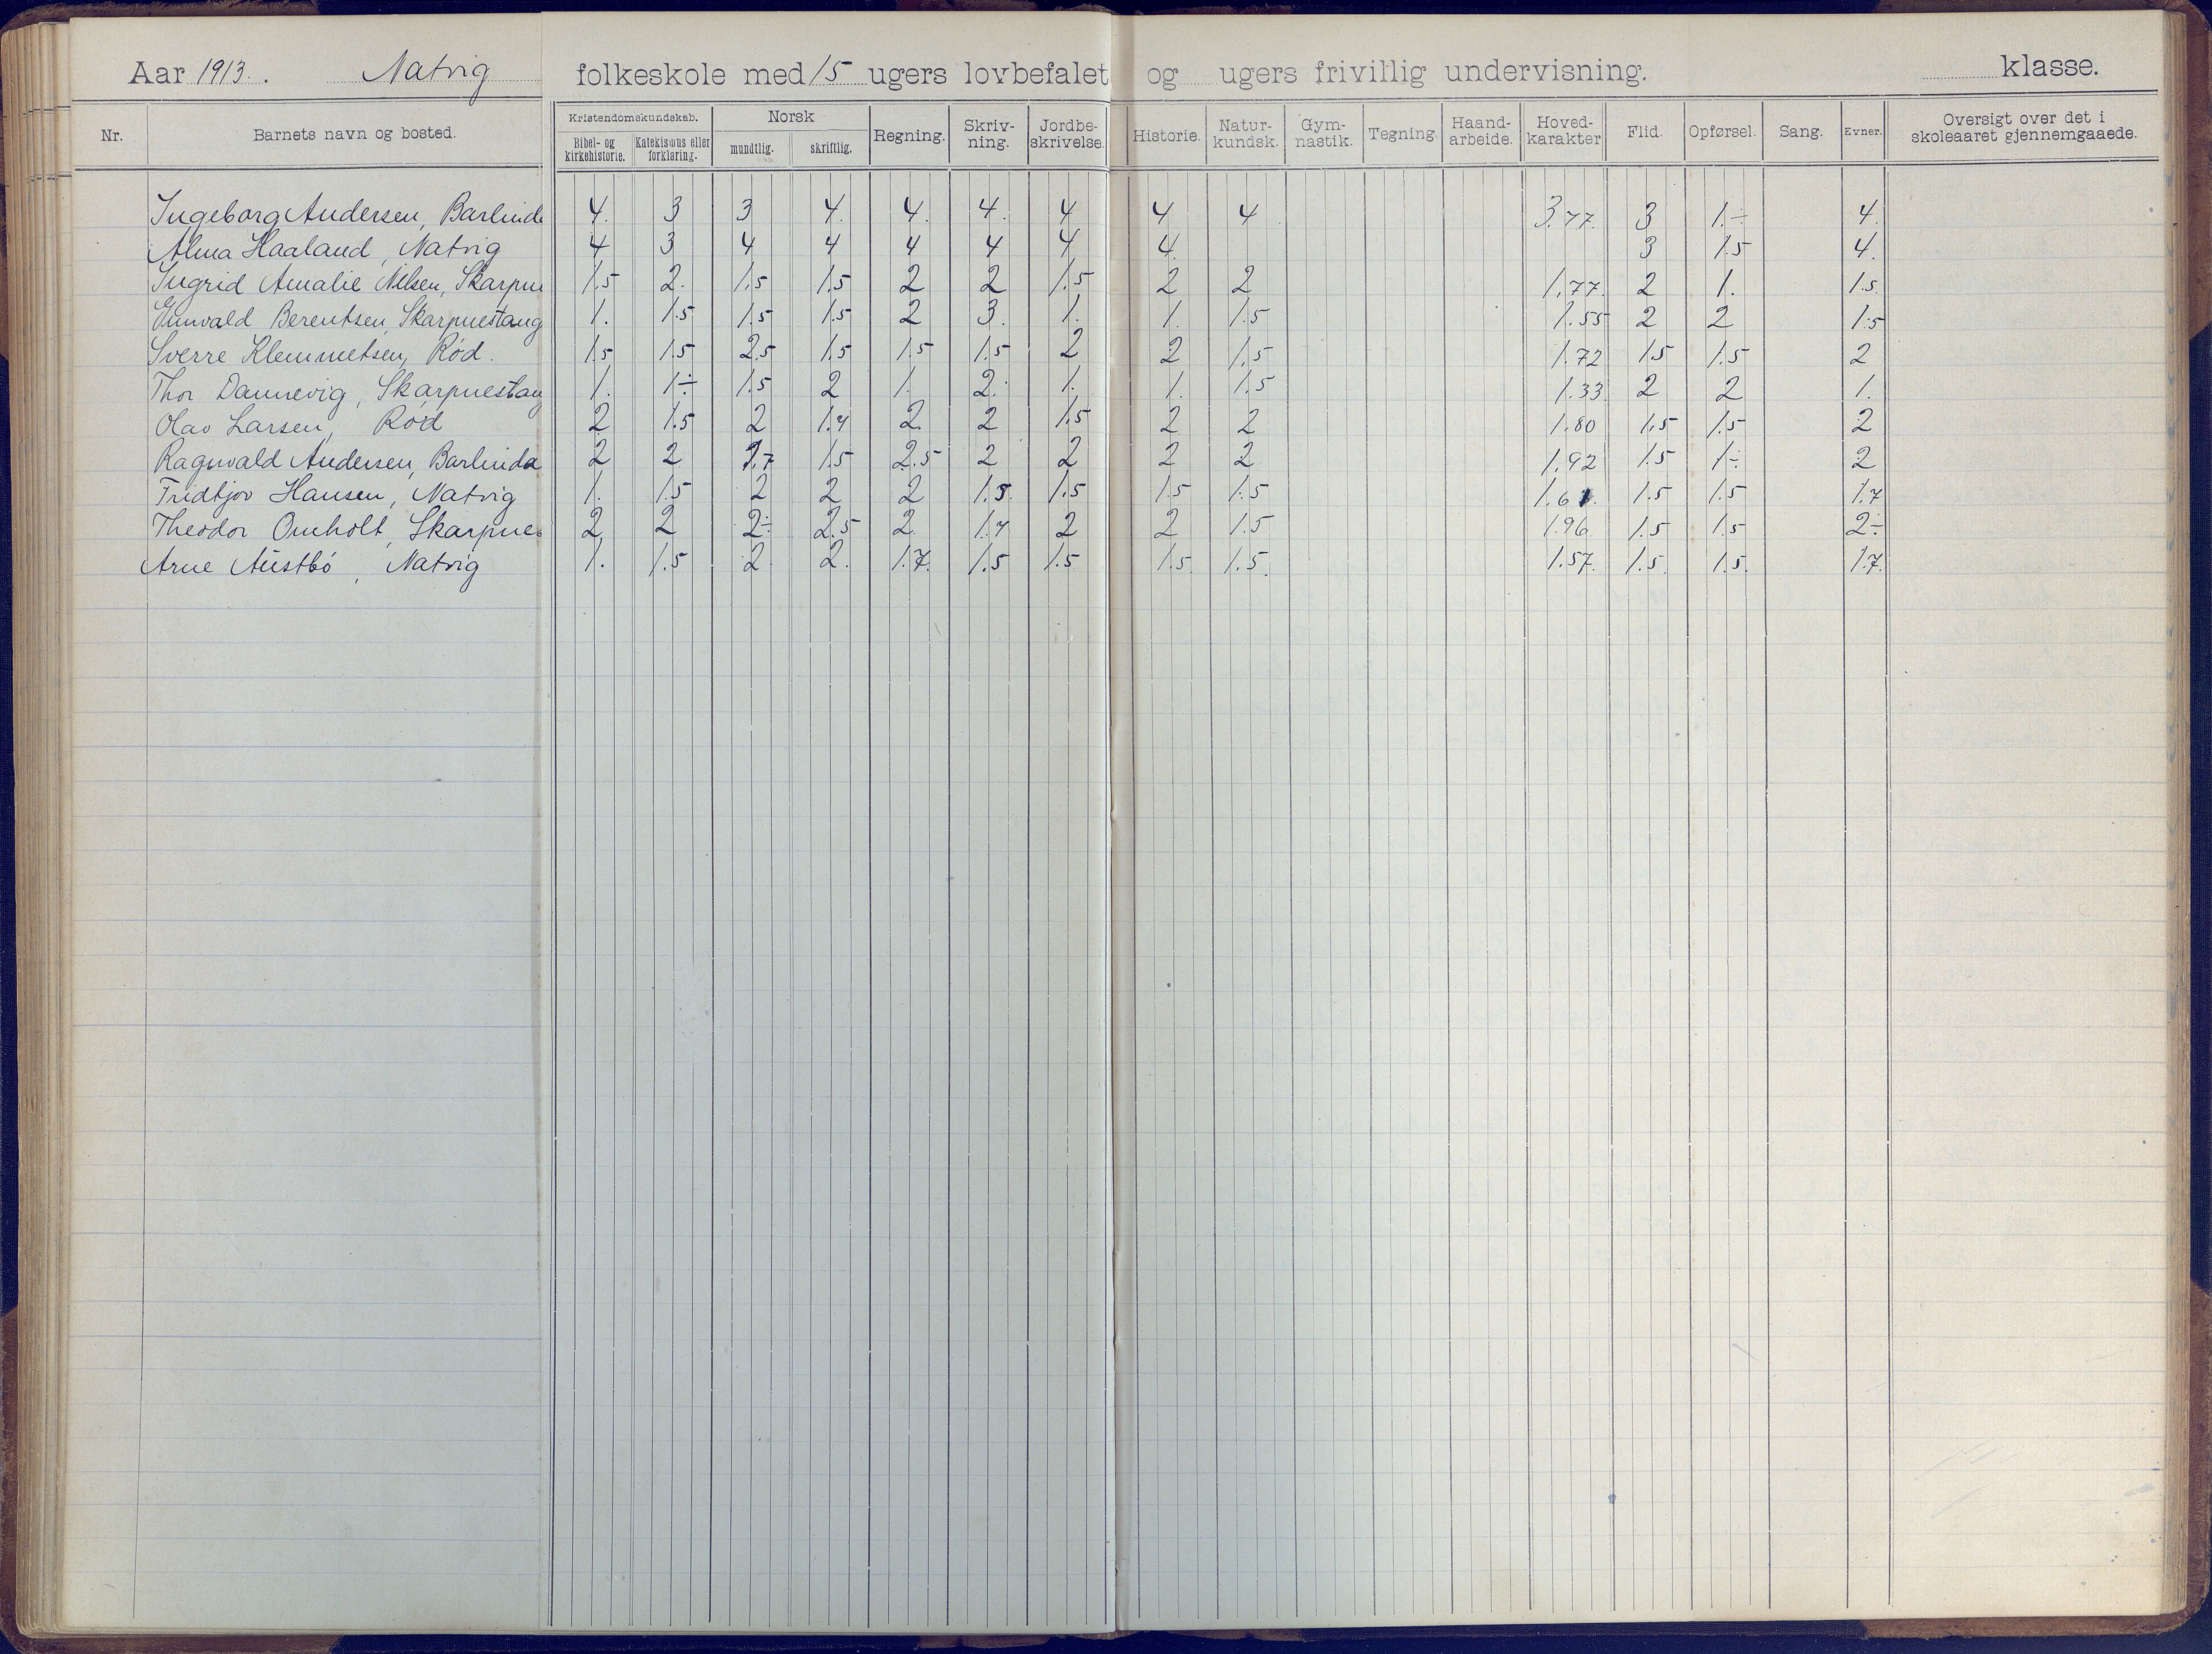 Aar 1913. Natvig folkeskole med 15 ugers lovbefalet og ugers frivillig undervisning. klasse.
Nr. Barnets navn og bosted. Kristendomskundskab. Bibel- og kirkehistorie. Katekismus eller forklaring. Norsk mundtlig. skriftlig. Regning. Skriv-ning. Jordbe-skrivelse. Historie. Natur-kundsk. Gym-nastik. Tegning. Haand-arbeide. Hoved-karakter Flid. Opførsel. Sang. Evner. Oversigt over det i skoleaaret gjennemgaaede.
Ingeborg Andersen, Barlind 4. 3 3 4. 4. 4. 4 4 4 3.77. 3 1.÷ 4.
Alma Haaland, Natvig 4 3 4 4 4 4 4 4. 3 1.5 4.
Ingrid Amalie Nilsen, Skarpn 1.5 2. 1.5 1.5 2 2 1.5 2 2 1.77. 2 1. 1.5.
Gunvald Berentsen, Skarpnestang 1. 1.5 1.5 1.5 2 3. 1. 1. 1.5 1.55 2 2 1.5
Sverre Klemmetsen, Rød. 1.5 1.5 2.5 1.5 1.5 1.5 2 2 1.5 1.72 1.5 1.5 2
Thor Dannevig, Skarpnestang 1. 1÷ 1.5 2 1. 2. 1. 1. 1.5 1.33 2 2 1.
Olav Larsen, Rød 2 1.5 2 1.7 2. 2 1.5 2 2 1.80 1.5 1.5 2
Ragnvald Andersen, Barlinda 2 2 1.5 2.5 2 2 2 2 1.92 1.5 1÷ 2
Fridtjov Hansen, Natvig 1. 1.5 2 2 2 1.5. 1.5 1.5 1.5 1.5 1.5 1.7
Theodor Omholt, Skarpnes 2 2 2÷ 2.5 2. 1.7 2 2 1.5 1.96 1.5 1.5 2÷
Arne Austbö, Natvig 1. 1.5 2. 2. 1.7. 1.5 1.5 1.5. 1.5. 1.57. 1.5. 1.5. 1.7.